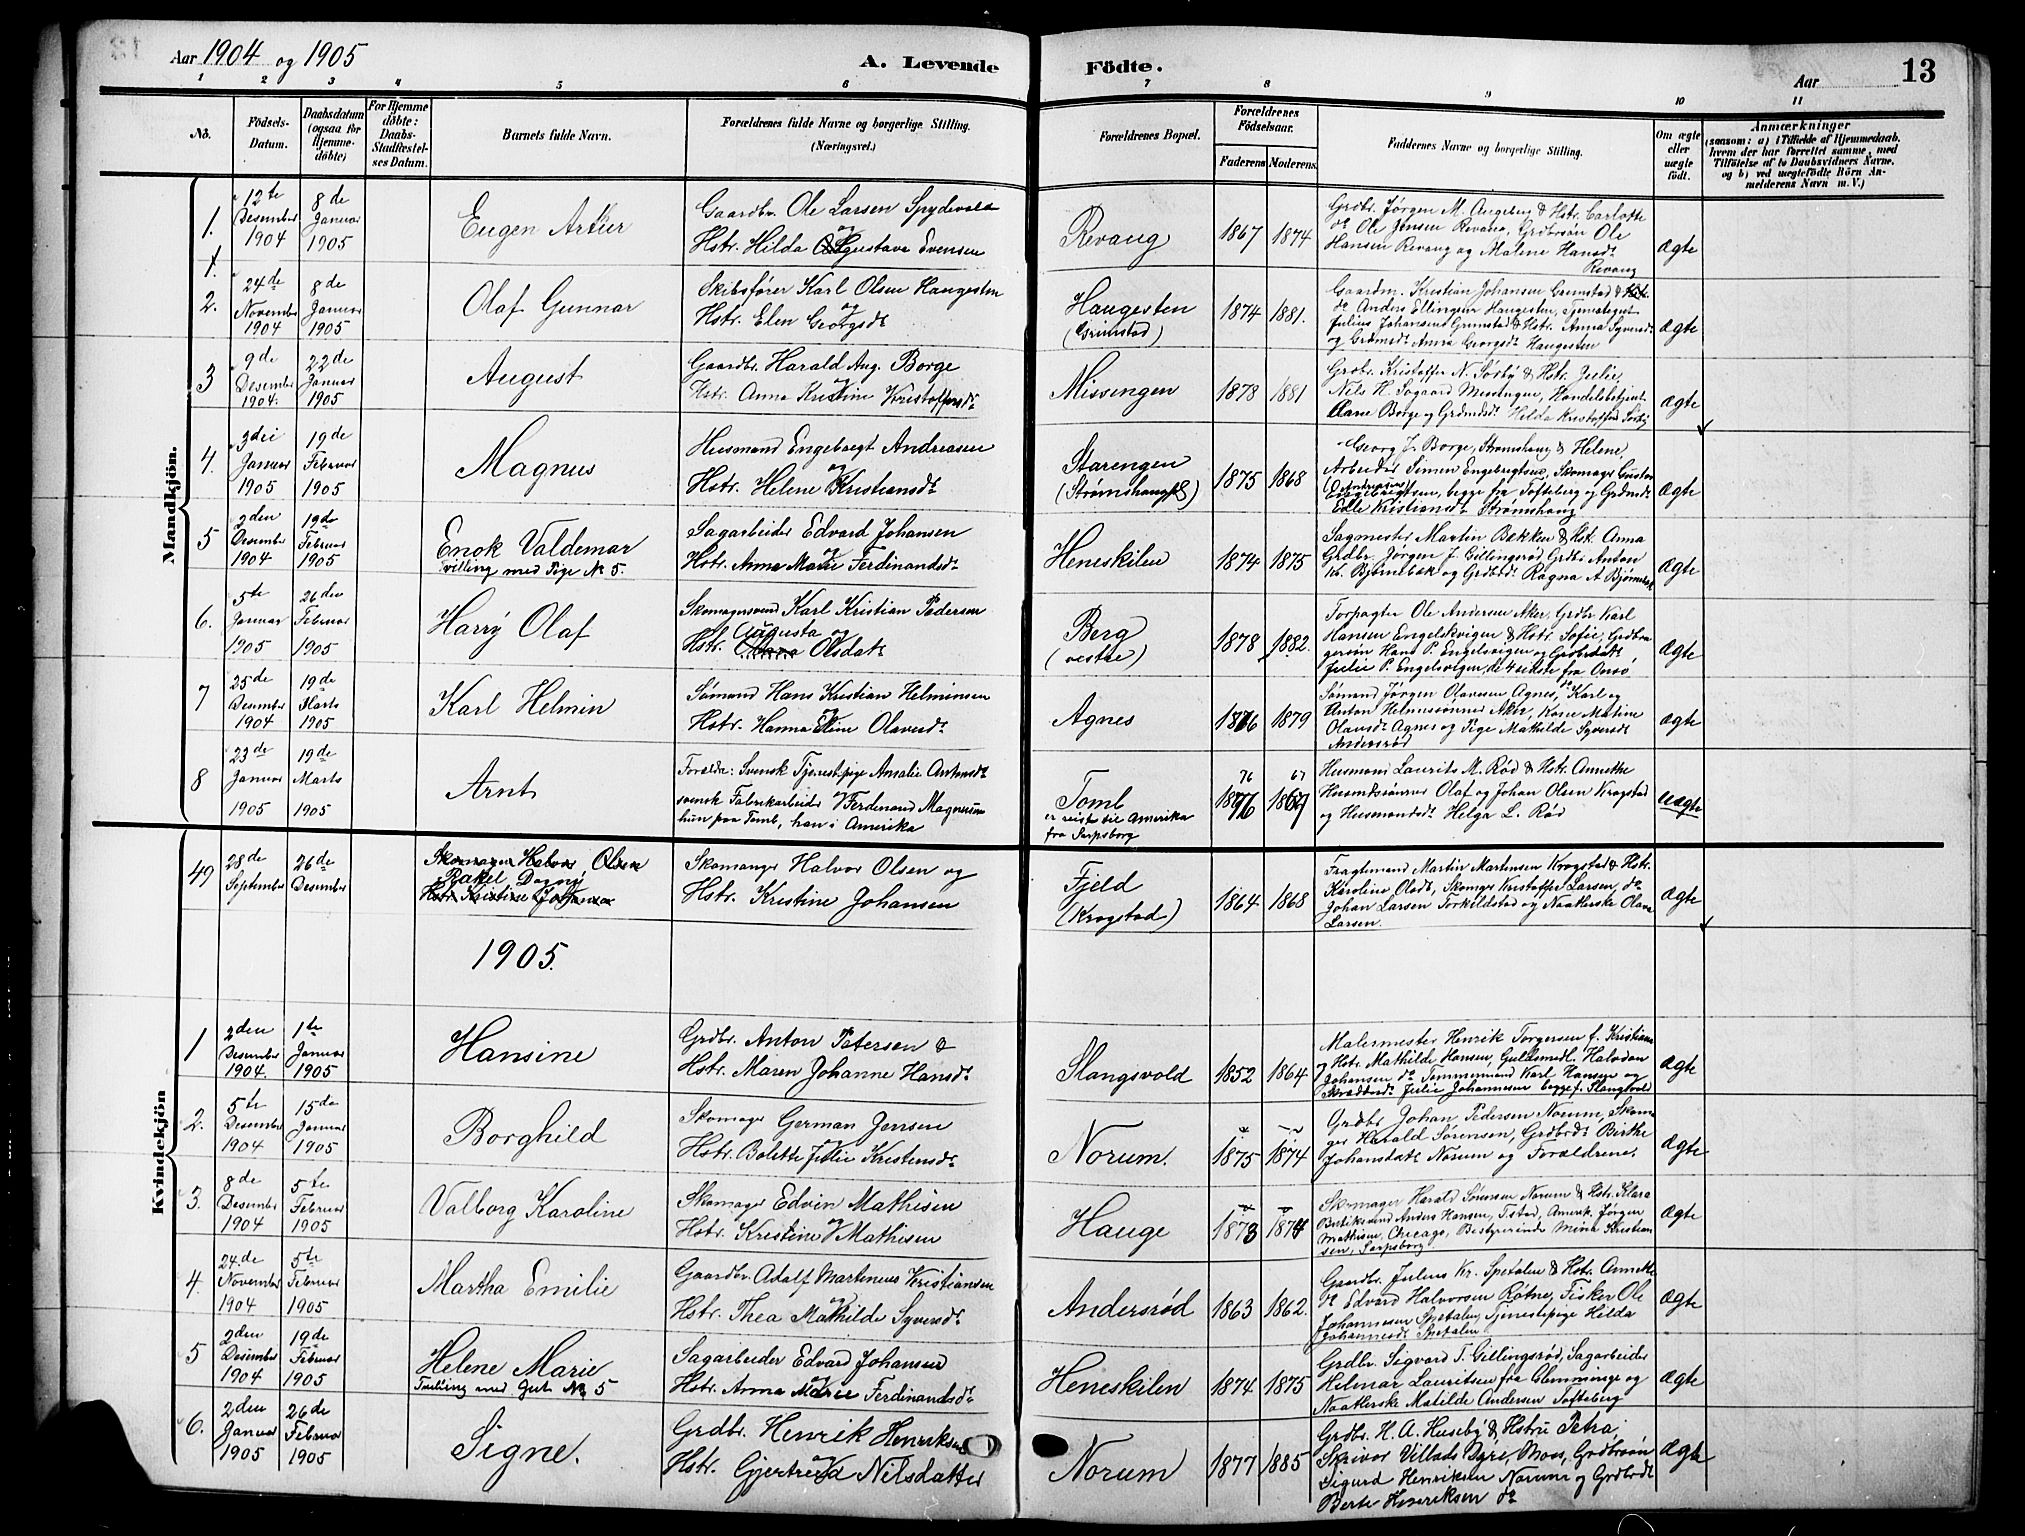 Aar 1904 og 1905
A. Levende
Födte.
Aar
13
1 2 3 4 5 6 7 8 9 10 11
No.
Födsels-
Datum.
Daabsdatum
(ogsaa for
Hjemme-
döbte)
For Hjemme
döbte:
Daabs-
Stadfæstel-
ses Datum.
Barnets fulde Navn.
Forældrenes fulde Navne og borgerlige Stilling.
(Næringsvei.)
Forældrenes Bopæl.
Forældrenes
Födselsaar.
Faderens
Moderens
Faddernes Navne og borgerlige Stilling.
Om ægte
eller
uægte
født.
Anmærkninger
(saasom: a) i Tilfælde af Hjemmedaab,
hvem der har forrettet samme, med
Tilföielse af to Daabsvidners Navne.
og b) ved uægtefödte Börn An-
melderens Navn m. V.)
Mandkjön.
1.
12te
Desember
1904
8de
Januar
1905
Eugen Artur
Gaardbr. Ole Larsen Spydevold
og
Hstr. Hilda Augustava Evensen
Revaug
1867
1874
Grdbr. Jørgen M. Augeberg & Hstr. Carlotte
do Ole Jensen Revaug, Grdbrsön Ole
Hansen Revaug og Malene Hansdt
Revaug
ægte
1.
2.
24de
November
1904
8de
Januar
1905
Olaf Gunnar
Skibsfører Karl Olsen Haugesten
og
Hstr. Elen Georgsdt
Haugesten
(Grimstad)
1874
1881.
Gaardm. Kristian Johansen Grimstad & Hstr.
do Anders Ellingsen Haugesten, Tjenestegut
Julius Johansen Grimstad & Hstr. Anna Syversdt
og Grdmdt Anna Georgsdt Haugesten
ægte
3
9de
Desember
1904.
22de
Januar
1905
August
Gaardbr. Harald Aug. Borge
Hstr. Anna Kristine Kristoffersdt
Missingen
1878
1881
Grdbr. Kristoffer N. Sørby & Hstr. Julie,
Nils H. Sogaard Missingen, Handelsbetjent
Borge og Grdmdt Hilda Kristoffsdt Sørby
ægte
4.
3dei
Januar
1905
19de
Februar
1905
Magnus
Husmand Engebregt Andreasen
og
Hstr. Helene Kristiansdt
Starengen
(Strømshaugpl)
1875
1868
Georg J. Borge, Strømshaug & Helene,
Arbeider Simen Engebrigtsen, Skomager Gustav
(Andreasens)
Engebrigtsen, begge fra Tofteberg og Grdmdt
Edle Kristiansdt Strømshaug
ægte
5
2den
Desember
1904
19de
Februar
1905
Enok Valdemar
Tvilling med Pige No 5.
Sagarbeider Edvard Johansen
og
Hstr. Anna Marie Ferdinandsdt
Heneskilen
1874
1875
Sagmester Martin Bekken & Hst. Anna
Grdbr. Jørgen J. Gillingsrød, Grdbr Anton
Kr. Bjørnebæk og Grdbdt. Ragna A Bjørnebæk
ægte
6.
5te
Januar
1905
26den
Februar
1905
Harry Olaf
Skomagersvend Karl Kristian Pedersen
Augusta og
Hstr. Anna Olsdat
Berg
(vestre)
1878
1882.
Forpagter Ole Andersen Aker, Grdbr Karl
Hansen Engelskvigen & Hstr. Sofie, Grdbru
gersön Hans P. Engelsvigen og Grdbrdatt
Julie P. Engelsvigen, de 4 sidste fra Onsö
ægte
7
25de
Desember
1904
19de
Marts
1905
Karl Helmin
Sømand Hans Kristian Helminsen
og
Hstr. Hanna Eline Olavesdt
Agnes
1876
1879
Sømand Jørgen Olavesen Agnes, do Karl og
Anton Helminsønner Aker, Karen Matine
Olausdt Agnes og Pige Mathilde Syversdt
Andersrød
ægte
8
23de
Januar
1905
19de
Marts
1905
Arnt
Foræld: Svensk Tjenestepige Amalie Antonsdt
svensk Fabrikarbeider Ferdinand Magnuson
hun paa Tomb, han i Amerika
Tomb
er reist til Amerika
fra Sarpsborg
76
1876
67
1867
Husmand Laurits M. Rød & Hstr. Annette
Husmdsönner Olaf og Johan Olsen Krogstad
og Husmandsdt Helga L. Rød
uægte
Kvindekjön
49
28de
September
26de
Desember
Skomager Halvor Olsen
Rakel Dagny
Hstr. Kristine Johansen
Skomager Halvor Olsen og
Hstr. Kristine Johansen
Fjeld
(Krogstad)
1864
1868
Fragtemand Martin Martensen Krogstad & Hstr.
Karoline Olsdt, Skomager Kristoffer Larsen, do
Johan Larsen Torkildstad og Naatlerske Olava
Larsen.
ægte
1905.
1
2den
Desember
1904.
1te
Januar
1905
Hansine
Grdbr. Anton Petersen &
Hstr. Maren Johanne Hansdt
Slangsvold
1852
1864
Malermester Henrik Torgersen f. Kristiania
Hstr. Mathilde Hansen, Guldsmedl. Halvdan
Johansen do Tømmermand Karl Hansen og
Julie Johannesen begge f. Slangsvold
ægte
2.
5te
Desember
1904
15de
Januar
1905
Borghild
Skomager German Jensen
Hstr. Bolette Julie Kristensdt
Norum.
1875
1874
Grdbr Johan Pedersen Norum, Skoma
ger Harald Sørensen, Grdbrdt Birthe
Johansdatt Norum og Forældrene.
ægte
3.
8de
Desember
1904
5te
Februar
1905
Valborg Karoline
Skomager Edvin Mathisen
og
Hstr. Kristine Mathisen
Hauge
1873
1874
Skomager Harald Sørensen Norum & Hstr. Klara
Butiksvend Anders Hansen, Fstad, Amerik. Jørgen
Mathisen, Chicago, Bestyrerinde Mina Kristian
sen, Sarpsborg
ægte
4.
24de
November
1904
5te
Februar
1905
Martha Emilie
Gaardbr. Adolf Martinius Kristiansen
og
Hstr. Thea Mathilde Syversdt
Andersrød
1863
1862.
Gaardbr. Julius Kr. Spetalen & Hstr. Annette
do Edvard Halvorsen Røtne, Fisker Ole
Johannesen Spetalen, Tjenestepige Hilda
Johannesdt Spetalen
ægte
5
2den
Desember
1904
19de
Februar
1905
Helene Marie
Tvilling med Gut No 5
Sagarbeider Edvard Johansen
og
Hstr. Anna Marie Ferdinandsdt
Heneskilen
1874
1875
Grdbr. Sigvard T. Gillingsrød, Sagarbeider
Hilmar Lauritsen fra Glemminge og
Naatlerske Matilde Andersen Tofteberg
ægte
6.
2den
Januar
1905
26de
Februar
1905
Signe.
Grdbr. Henrik Henriksen
og
Hstr. Gjertrud Nilsdatter
Norum
1877
1885
Grdbr. H. A. Huseby & Hstru Petra,
Skriver Villads Dyre, Moss, Grdbrsön
Sigurd Henriksen Norum og Grdbrdt
Berte Henriksen do
ægte